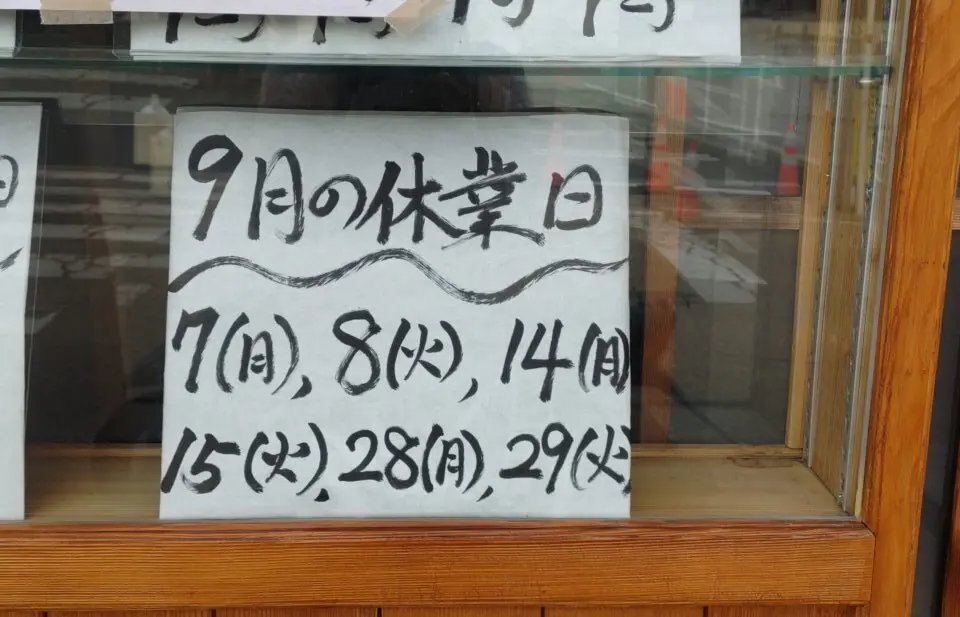 9月の休業日
7(月)、8(火)、14(月)
15(火)、28(月)、29(火)